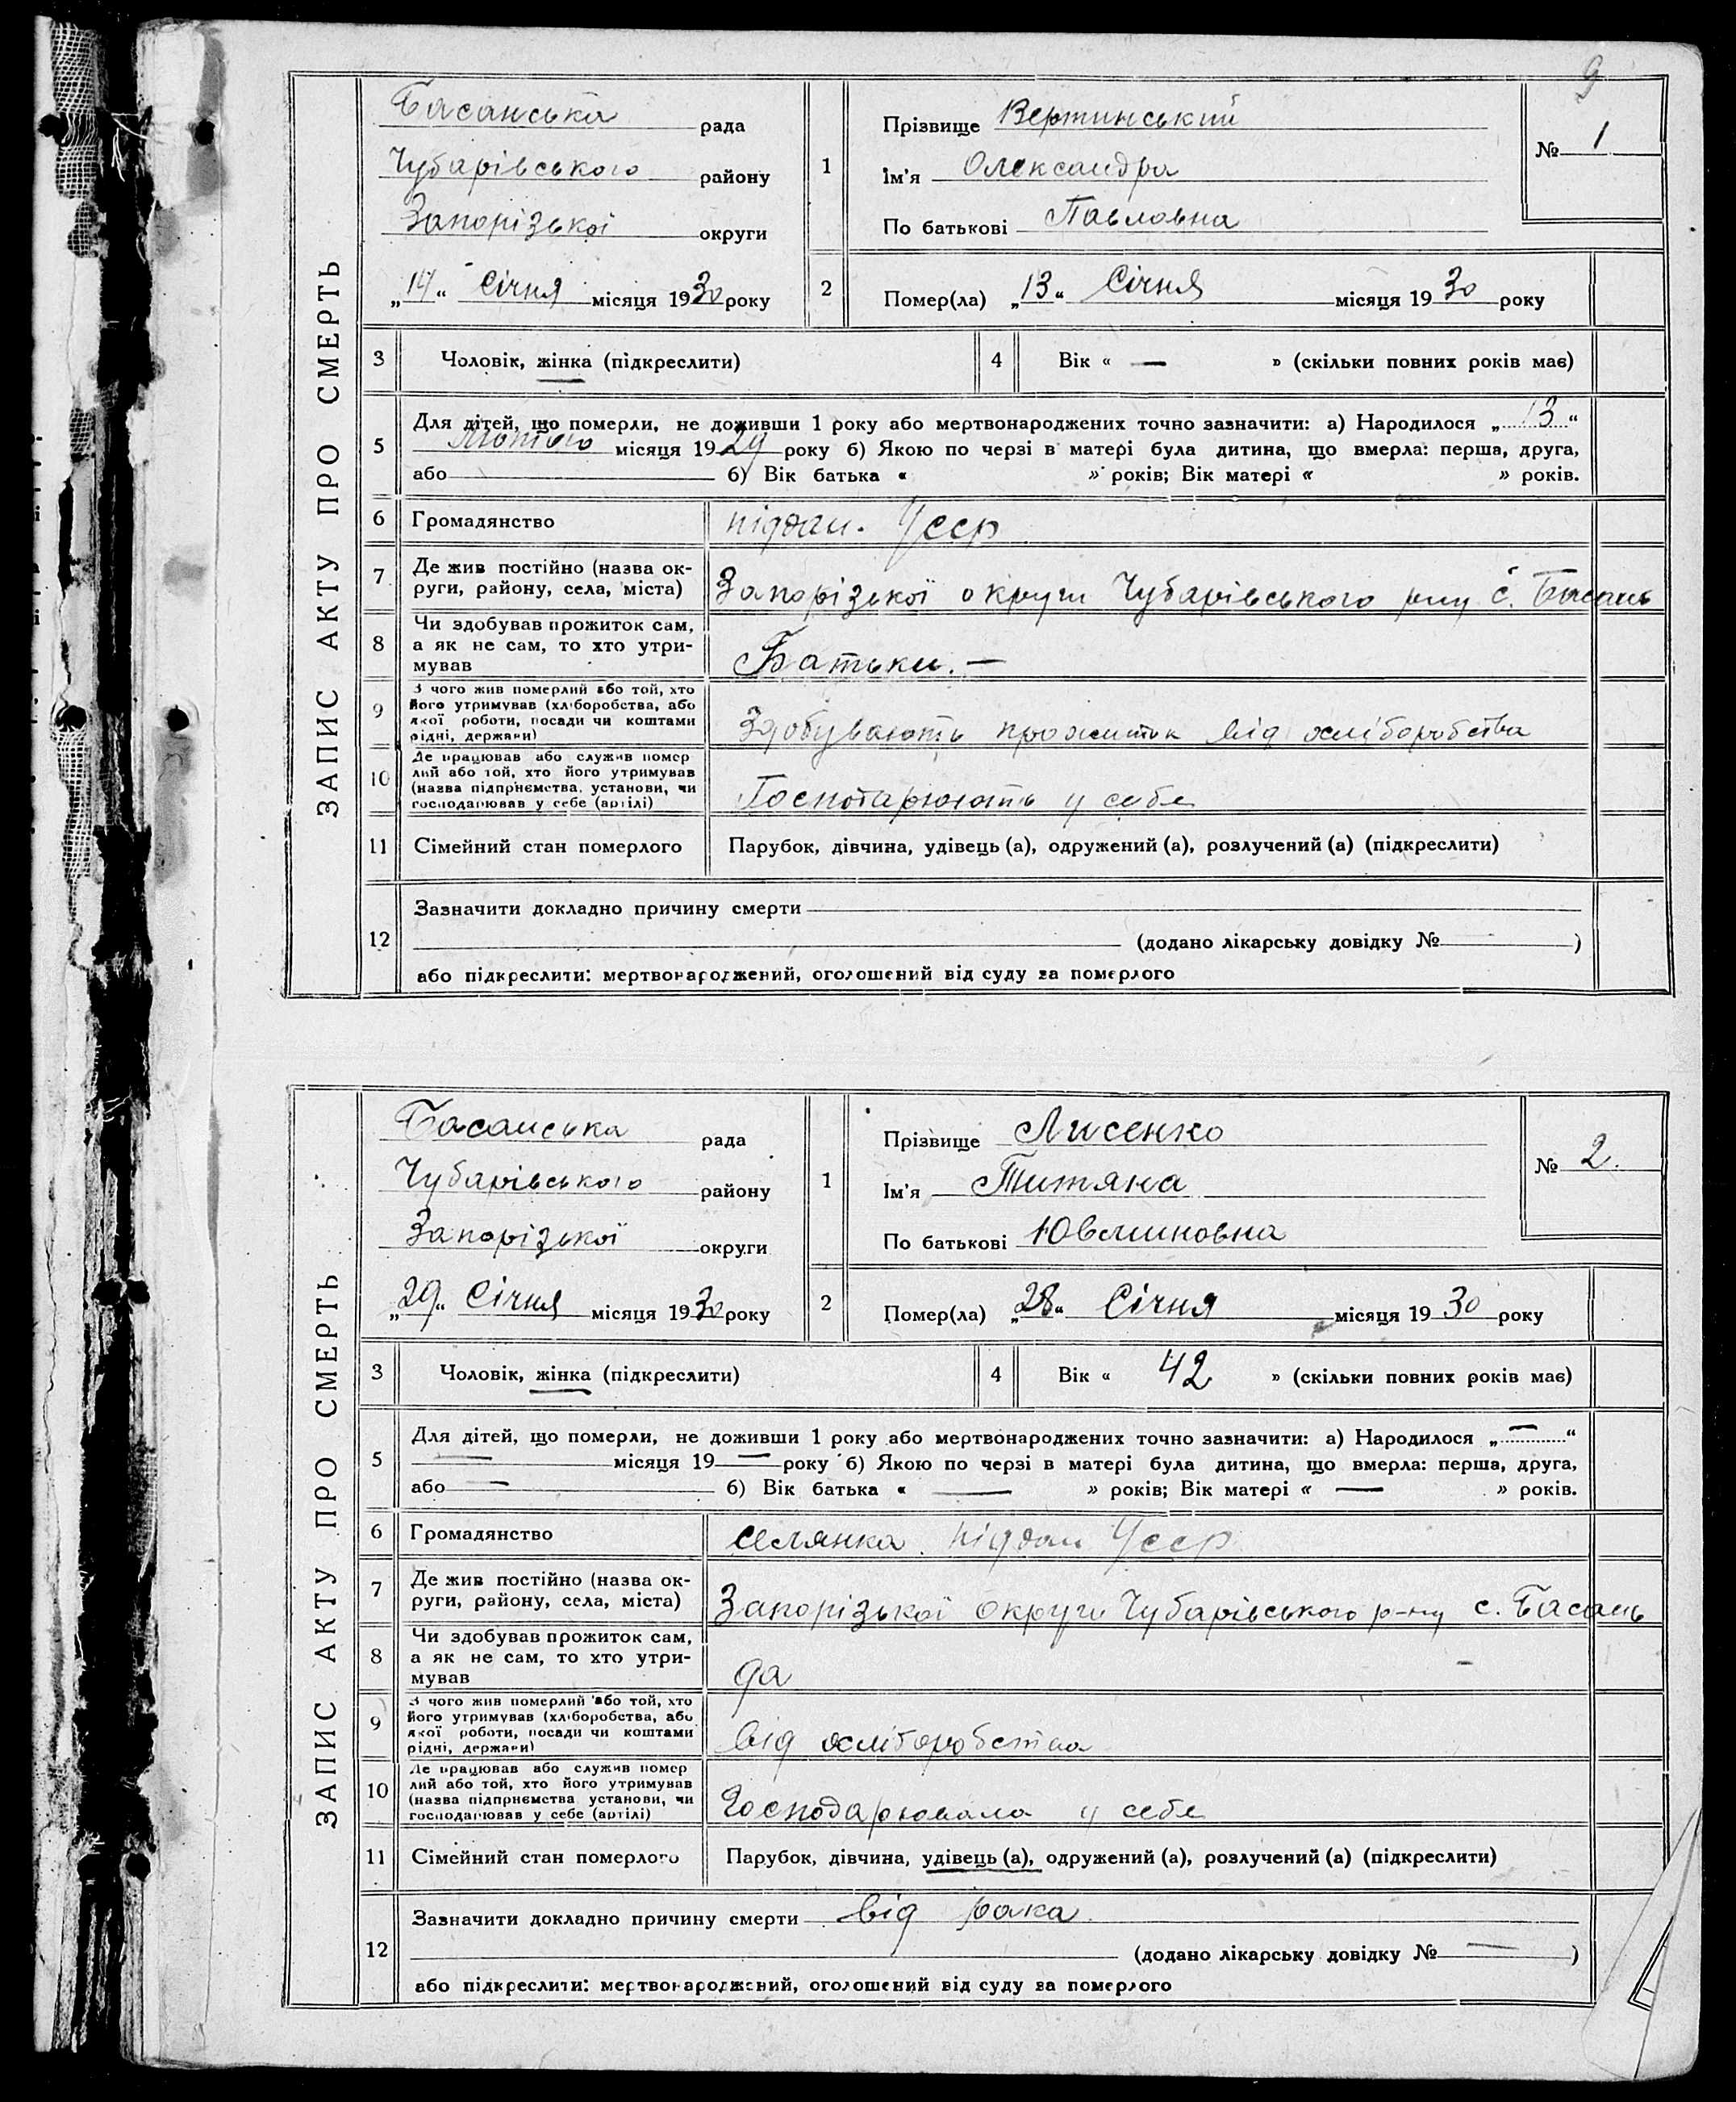 9
ЗАПИС АКТУ ПРО СМЕРТЬ
Басанська рада
Чубарівського району
Запорізької округи
„14“ Січня місяця 1930 року
1
Прізвище Вертинський
Ім'я Олександра
По батькові Павловна
№ 1
2
Помер(ла) „13“ Січня місяця 1930 року
3 Чоловік, жінка (підкреслити)
4 Вік « — » (скільки повних років має)
5
Для дітей, що померли, не доживши 1 року або мертвонароджених точно зазначити: а) Народилося „13“
Лютого місяця 1929 року б) Якою по черзі в матері була дитина, що вмерла: перша, друга,
або б) Вік батька « » років; Вік матері « » років.
6 Громадянство піддан. Усср
7 Де жив постійно (назва ок-
руги, району, села, міста) Запорізької округи Чубарівського рну с. Басань
8 Чи здобував прожиток сам,
а як не сам, то хто утри-
мував Батьки. —
9 З чого жив померлий або той, хто
його утримував (хліборобства, або
якої роботи, посади чи коштами
рідні, держави) Здобувають прожиток від хліборобства
10 Де працював або служив помер
лий або той, хто його утримував
(назва підприємства, установи, чи
господарював у себе (артілі) Господарюють у себе
11 Сімейний стан померлого Парубок, дівчина, удівець (а), одружений (а), розлучений (а) (підкреслити)
12
Зазначити докладно причину смерти
(додано лікарську довідку № — )
або підкреслити: мертвонароджений, оголошений від суду за померлого
ЗАПИС АКТУ ПРО СМЕРТЬ
Басанська рада
Чубарівського району
Запорізької округи
„29“ Січня місяця 1930 року
1
Прізвище Лисенко
Ім'я Титяна
По батькові
№ 2.
2
Помер(ла) „28“ Січня місяця 1930 року
3 Чоловік, жінка (підкреслити)
4 Вік « 42 » (скільки повних років має)
5
Для дітей, що померли, не доживши 1 року або мертвонароджених точно зазначити: а) Народилося „—“
— місяця 19 — року б) Якою по черзі в матері була дитина, що вмерла: перша, друга,
або — б) Вік батька « — » років; Вік матері « — » років.
6 Громадянство селянка. піддан Усср
7 Де жив постійно (назва ок-
руги, району, села, міста) Запорізької округи Чубарівського р-ну с. Басань
8 Чи здобував прожиток сам,
а як не сам, то хто утри-
мував да —
9 З чого жив померлий або той, хто
його утримував (хліборобства, або
якої роботи, посади чи коштами
рідні, держави) від хліборобства
10 Де працював або служив помер
лий або той, хто його утримував
(назва підприємства установи, чи
господарював у себе (артілі) Господарювала у себе
11 Сімейний стан померлого Парубок, дівчина, удівець (а), одружений (а), розлучений (а) (підкреслити)
12
Зазначити докладно причину смерти від рака.
(додано лікарську довідку № — )
або підкреслити: мертвонароджений, оголошений від суду за померлого